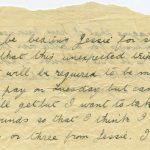 be beating Jessie for s
that this unexpected trip
will be required to be m
pay on Tuesday but can
ll get but I want to take
unds so that I think I
or three from Jessie. I